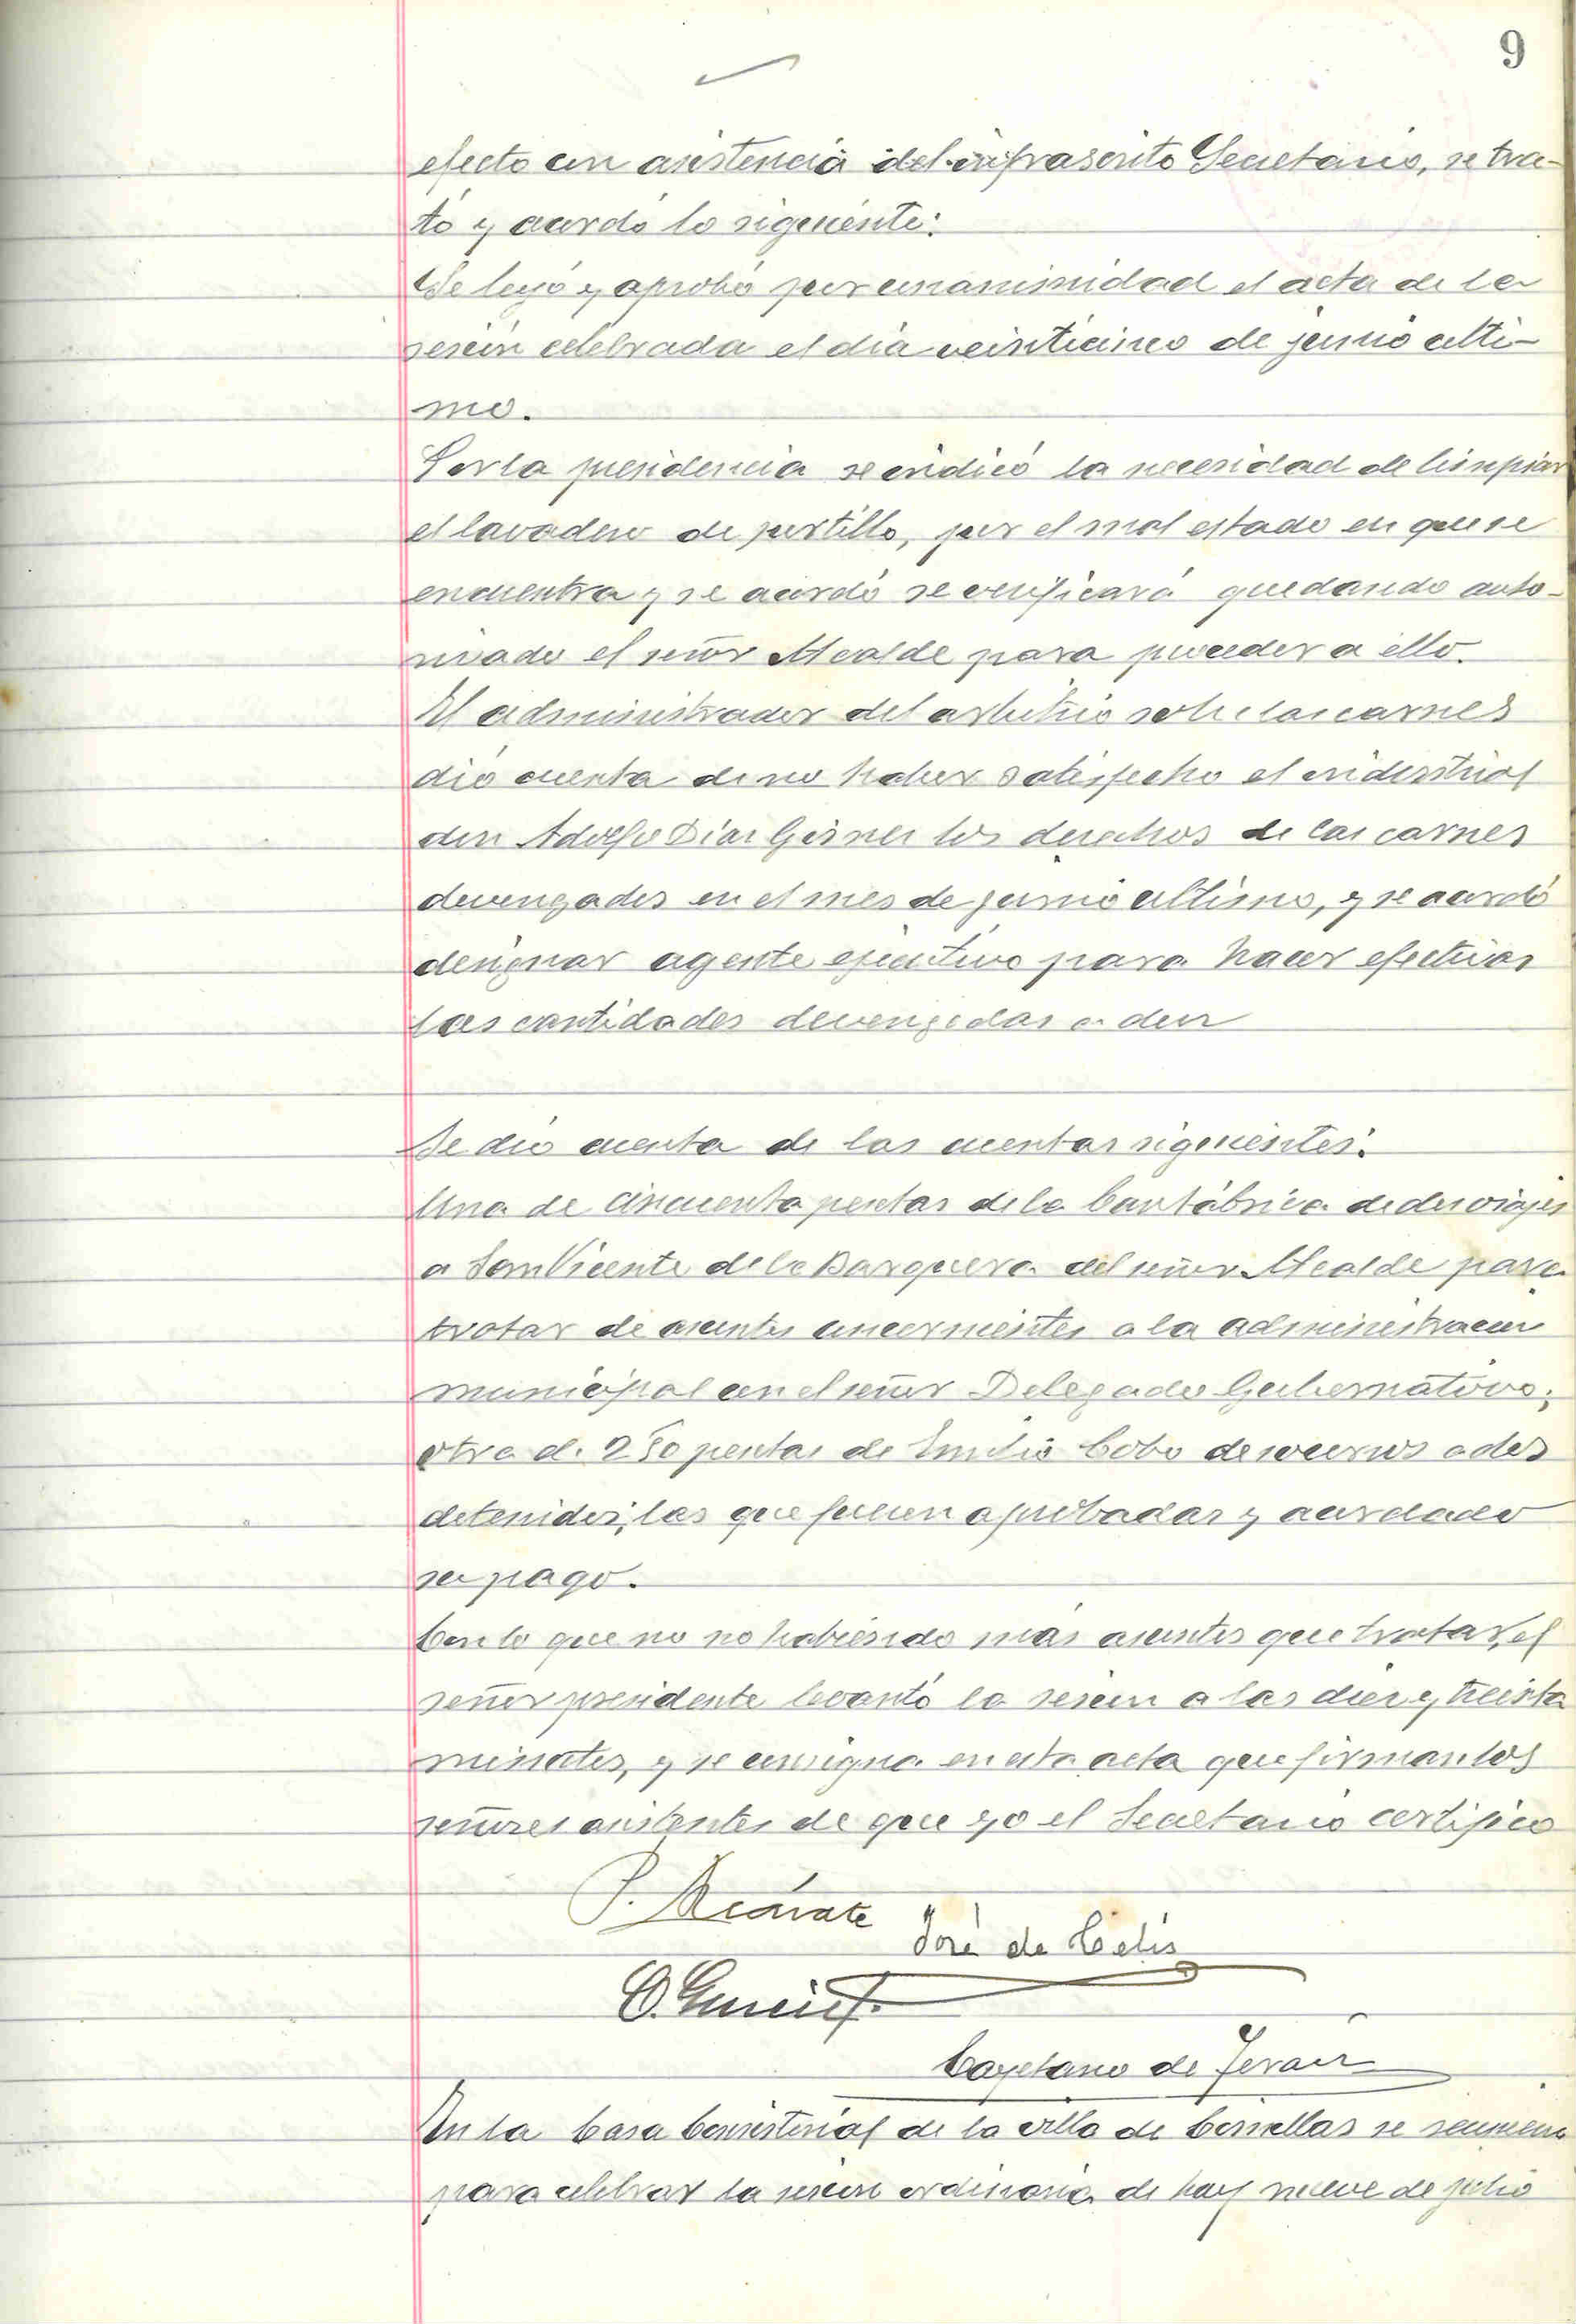 9
efecto con asistencia del infrascrito Secretario, se tra-
tó y acordó lo siguiente:
Se leyó y aprobó por unanimidad el acta de la
sesión celebrada el día veinticinco de junio ulti-
mo.
Por la presidencia se indicó la necesidad de limpiar
el lavadero de portillo, por el mal estado en que se
encuentra y se acordó se verificará quedando auto-
rizado el señor Alcalde para proceder a ello.
El administrador del arbitrio sobre las carnes
dió cuenta de no haber satisfecho el industrial
don Adolfo Díaz los derechos de las carnes
devengados en el mes de junio ultimo, y se acordó
designar agente ejecutivo para hacer efectivas
las cantidades devengadas a don
Se dio cuenta de las cuentas siguientes:
Una de cincuenta pesetas de la Cantábrica de dos viajes
a San Vicente de la Barquera del señor Alcalde para
tratar de asuntos concernientes a la administracion
municipal con el señor Delegado Gubernativo;
otra de 250 pesetas de Emilio Cobo de socorros a dos
detenidos; las que fueron aprobadas y acordado
su pago.
Con lo que no no habiendo más asuntos que tratar, el
señor presidente levantó la sesion a las diez y treinta
minutos, y se consigna en esta acta que firman los
señores asistentes de que yo el Secretario certifico
José de Celis
Cayetano de Terán
En la Casa Consistorial de la villa de Comillas se reunieron
para celebrar la sesion ordinaria de hoy nueve de julio